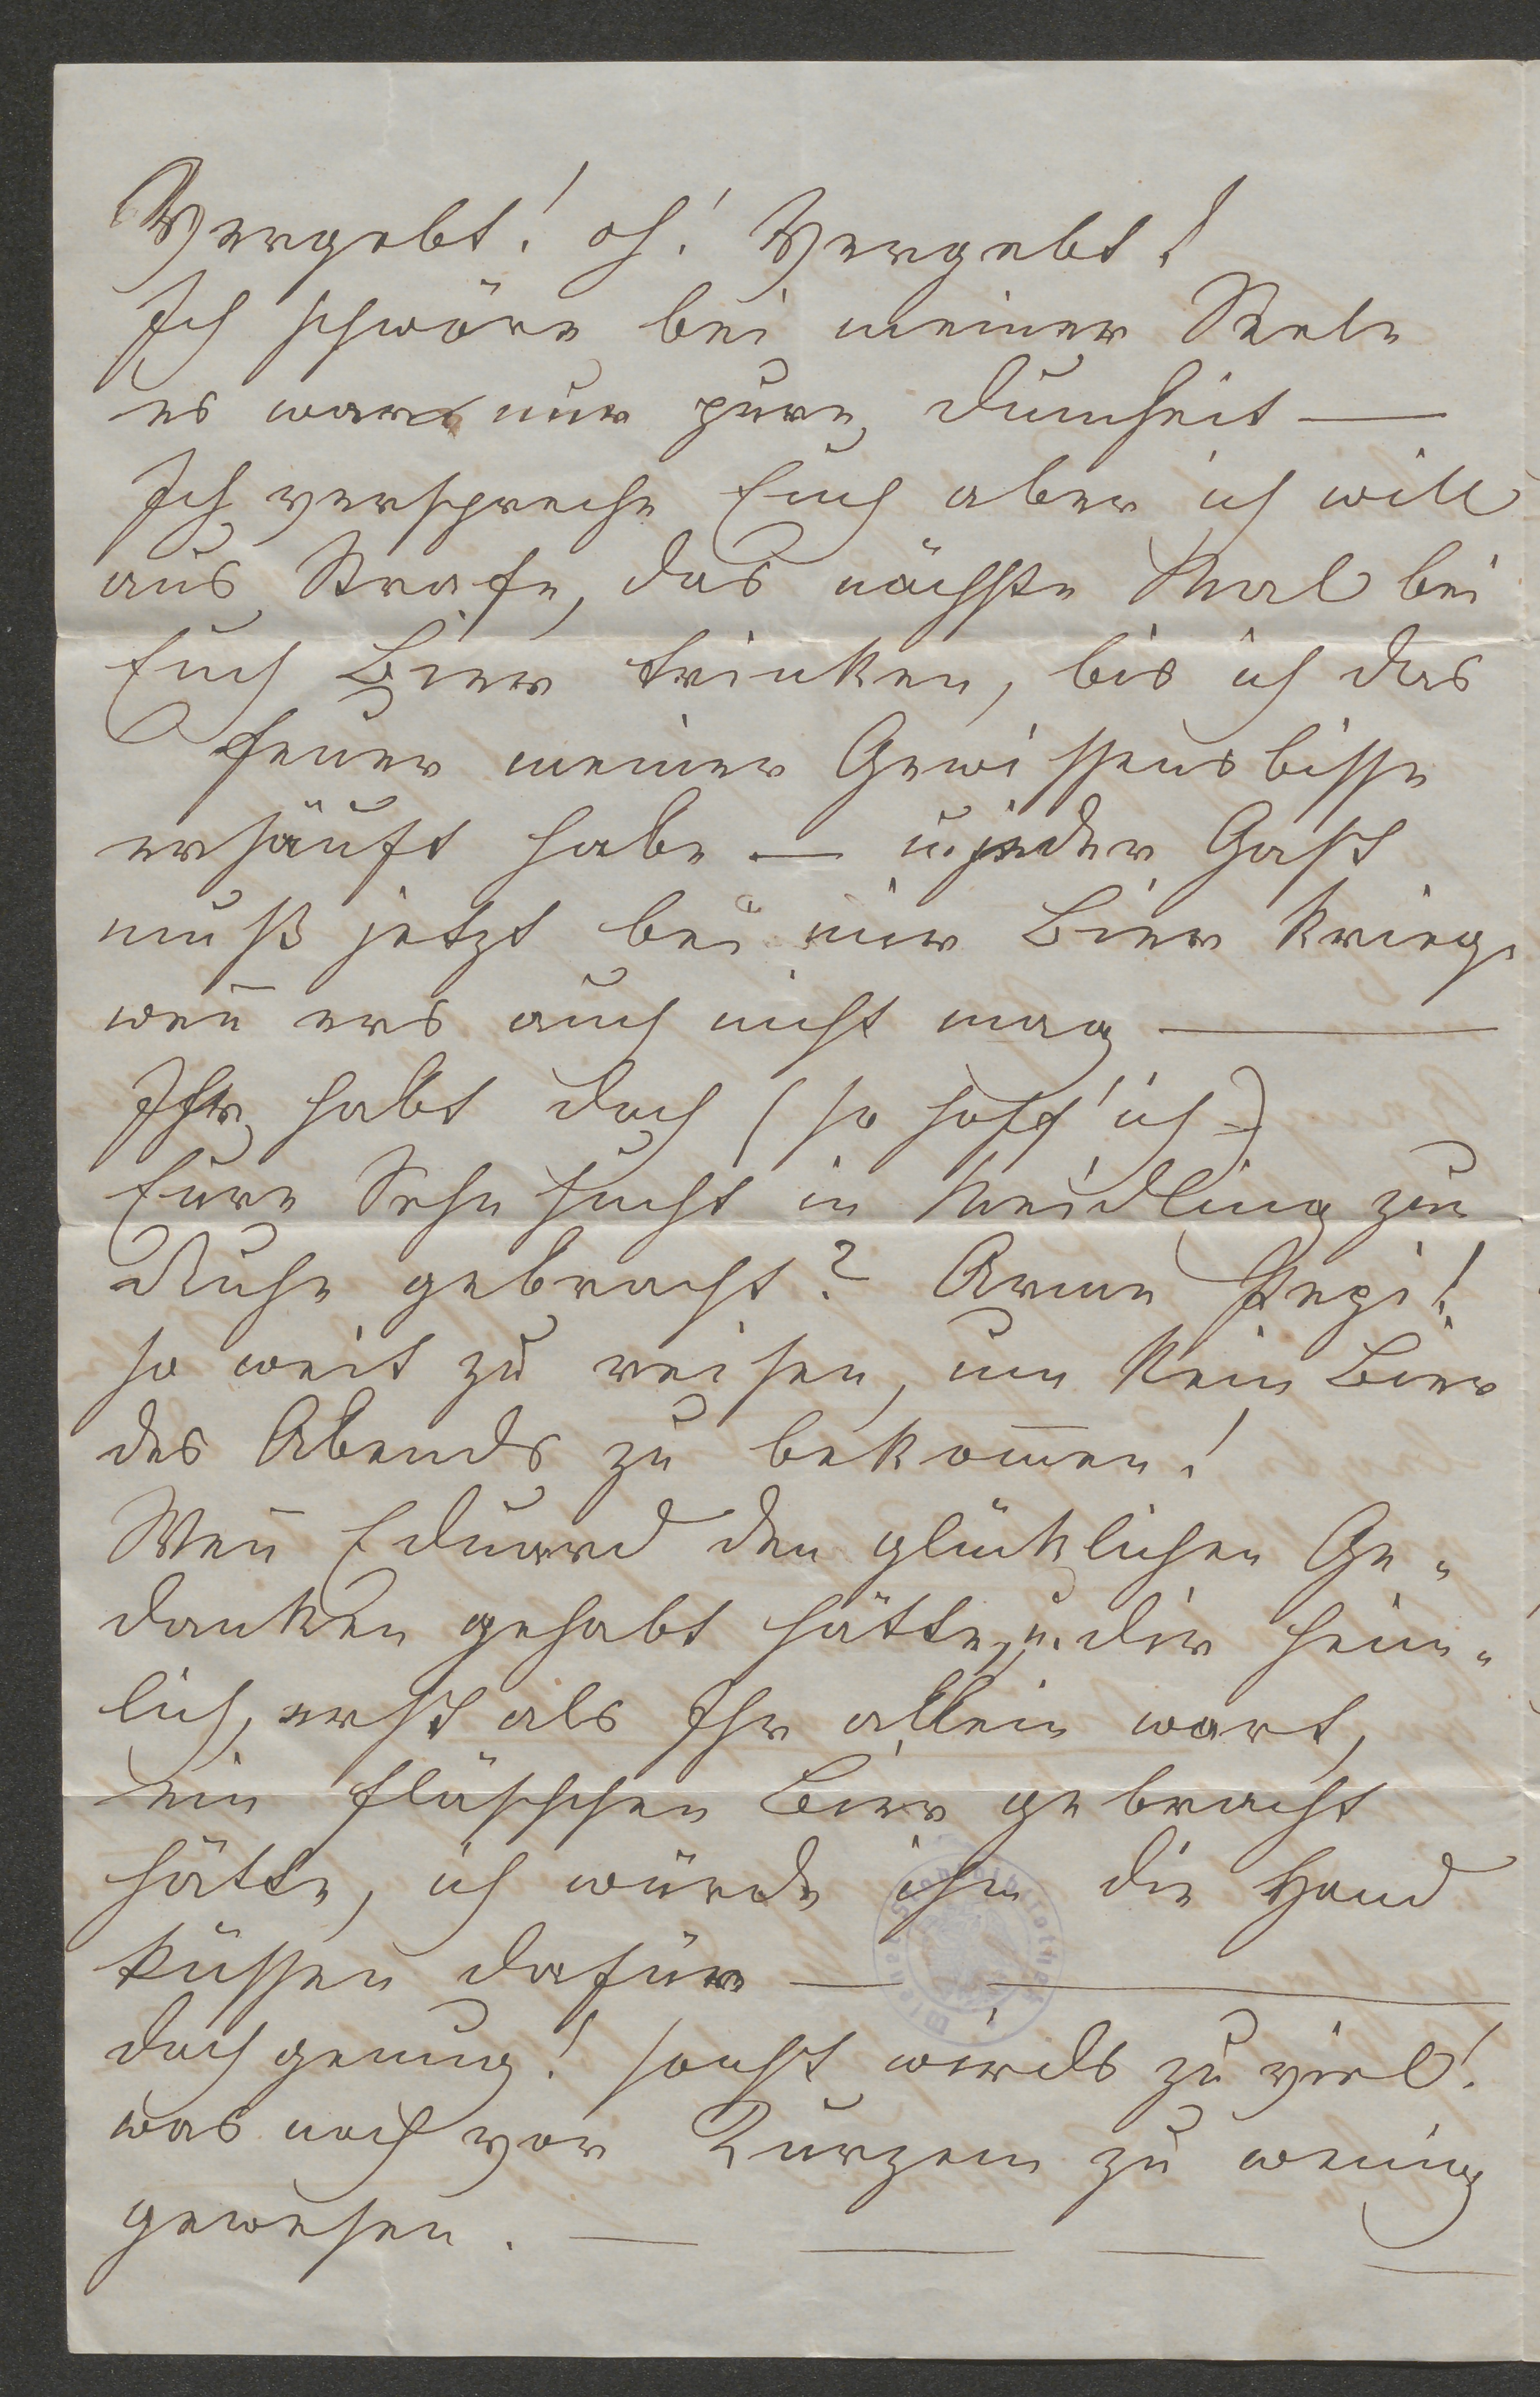 Vergebt! oh! Vergebt!
Ich schwöre bei meiner Seele
es war nur pure Dumheit —
Ich verspreche Euch aber ich will
aus Strafe, das nächste Mal bei
Euch Bier trinken, bis ich das
Feuer meiner Gewissensbisse
ersäuft habe — u. jeder Gast
muß jetzt bei mir Bier krieg.
weñ ers auch nicht mag —
Ihr habt doch (so hoff' ich)
Eure Sehnsucht in Meidling zur
Ruhe gebracht? Arme Pepi!
so weit zu reisen, um kein Bier
des Abends zu bekom̄en!
Weñ Eduard den glücklichen Ge-
danken gehabt hätte, u. dir heim-
lich, erst als Ihr allein wart,
ein Fläschchen Bier gebracht
hätte, ich würde ihm die Hand
küssen dafür — —
doch genug! sonst wirds zu viel!
was noch vor Kurzem zu wenig
gewesen. — — — —